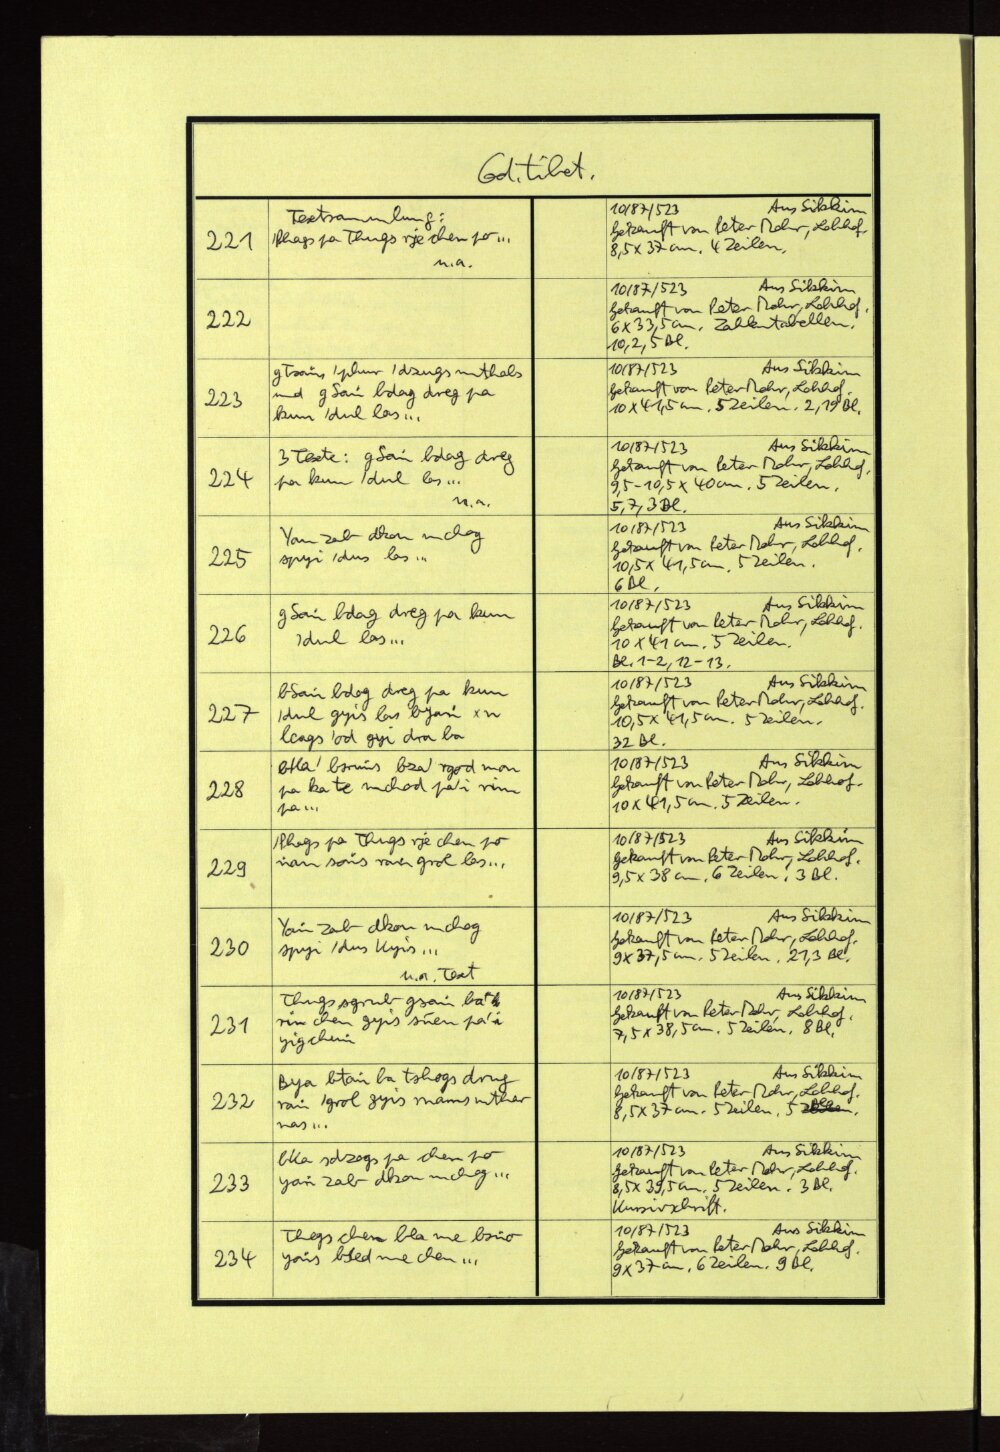 Cod. tibet.
221
Textsammlung:
'Phags pa Thugs rje chen po...
u.a.
10/87/523 Aus Sikkim
Gekauft von Peter Mohr, Lohhof.
8,5 x 37 cm. 4 Zeilen.
222
10/87/523 Aus Sikkim
Gekauft von Peter Mohr, Lohhof.
6 x 33,5 cm. Zahlentabellen.
10, 2, 5 Bl.
223
'phur 'dzugs
und gSaṅ bdag dreg pa
kun 'dul las...
10/87/523 Aus Sikkim
Gekauft von Peter Mohr, Lohhof.
10 x 41,5 cm. 5 Zeilen. 2, 19 Bl.
224
3 Texte: gSaṅ bdag dreg
pa kun 'dul las...
u.a.
10/87/523 Aus Sikkim
Gekauft von Peter Mohr, Lohhof.
9,5-10,5 x 40 cm. 5 Zeilen.
5, 7, 3 Bl.
225
Yaṅ zab dkon mchog
spyi 'dus las...
10/87/523 Aus Sikkim
Gekauft von Peter Mohr, Lohhof.
10,5 x 41,5 cm. 5 Zeilen.
6 Bl.
226
gSaṅ bdag dreg pa kun
'dul las...
10/87/523 Aus Sikkim
Gekauft von Peter Mohr, Lohhof.
10 x 41 cm. 5 Zeilen.
Bl. 1-2, 12-13.
227
bSaṅ bdag dreg pa kun
'dul gyis las byaṅ
lcags 'od gyi dra ba
10/87/523 Aus Sikkim
Gekauft von Peter Mohr, Lohhof.
10,5 x 41,5 cm. 5 Zeilen.
32 Bl.
228
bKa' bsruṅs bza' rgod mon
pa ka te mchod pa'i rim
pa...
10/87/523 Aus Sikkim
Gekauft von Peter Mohr, Lohhof.
10 x 41,5 cm. 5 Zeilen.
229
'Phags pa Thugs rje chen po
ṅan soṅs raṅ grol las...
10/87/523 Aus Sikkim
Gekauft von Peter Mohr, Lohhof.
9,5 x 38 cm. 6 Zeilen. 3 Bl.
230
Yaṅ zab dkon mchog
spyi 'dus kyis...
u.a. Text
10/87/523 Aus Sikkim
Gekauft von Peter Mohr, Lohhof.
9 x 37,5 cm. 5 Zeilen. 21, 3 Bl.
231
Thugs sgrub gsaṅ ba
rin chen gyis sñen pa'i
yig chuṅ
10/87/523 Aus Sikkim
Gekauft von Peter Mohr, Lohhof.
7,5 x 38,5 cm. 5 Zeilen. 8 Bl.
232
Bya btaṅ ba tshogs drug
raṅ 'grol gyis rnams mthar
nas...
10/87/523 Aus Sikkim
Gekauft von Peter Mohr, Lohhof.
8,5 x 37 cm. 5 Zeilen. 5
233
bKa rdzogs pa chen po
yaṅ zab dkon mchog...
10/87/523 Aus Sikkim
Gekauft von Peter Mohr, Lohhof.
8,5 x 39,5 cm. 5 Zeilen. 3 Bl.
Kursivschrift.
234
Thegs chen bla me bsṅo
yoṅs bsed me chen...
10/87/523 Aus Sikkim
Gekauft von Peter Mohr, Lohhof.
9 x 37 cm. 6 Zeilen. 9 Bl.